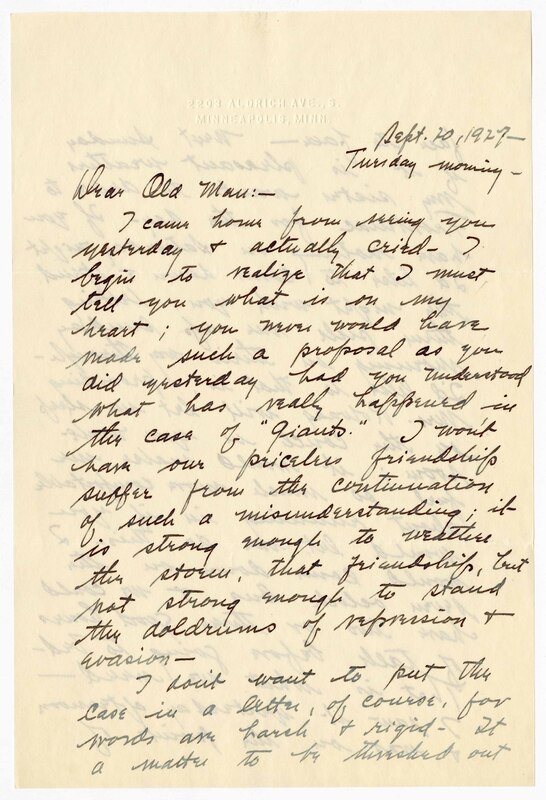 2203 ALDRICH AVE., S.
MINNEAPOLIS, MINN.
Sept. 20, 1927—
Tuesday morning—
Dear Old Man:—
I came home from seeing you
yesterday & actually cried— I
begin to realize that I must
tell you what is on my
heart; you never would have
made such a proposal as you
did yesterday had you understood
what has really happened in
the case of "Giants." I won't
have our priceless friendship
suffer from the continuation
of such a misunderstanding; it
is strong enough to weather
the storm, that friendship, but
not strong enough to stand
the doldrums of repression &
evasion—
I don't want to put the
case in a letter, of course, for
words are harsh & rigid— It
a matter to be threshed out